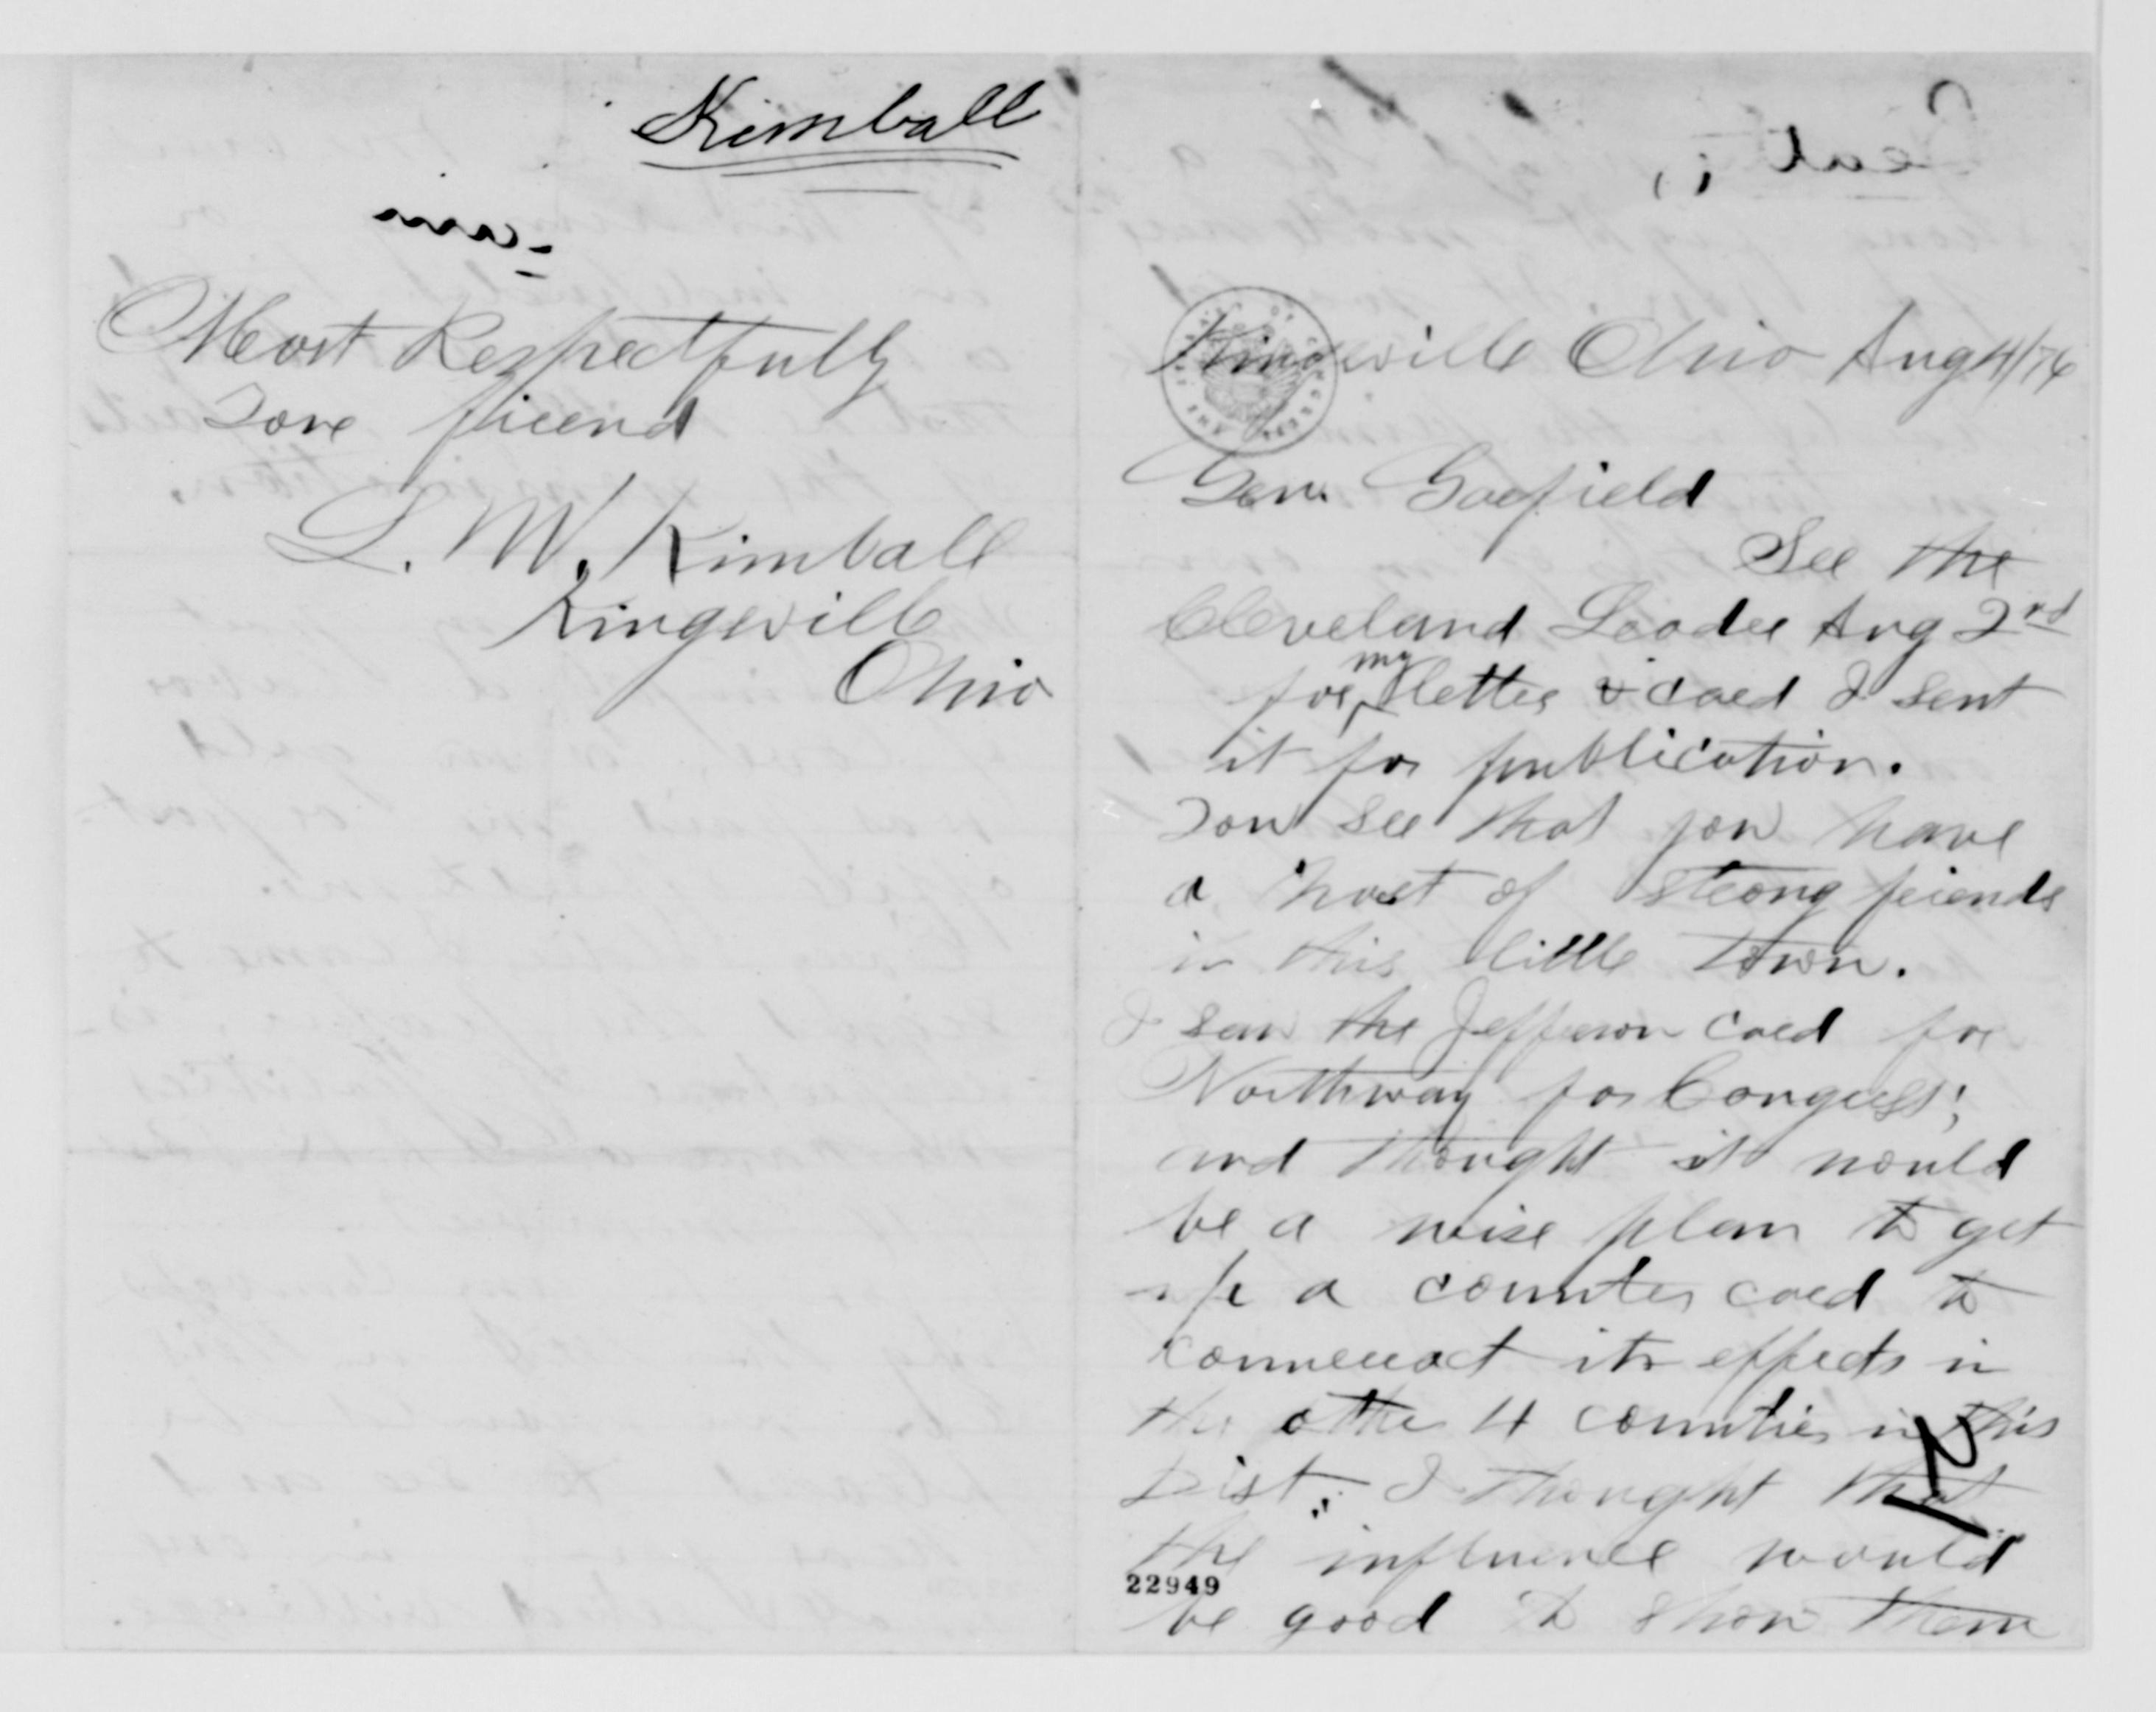 Kimball
Most Respectfully
Your friend
L. W. Kimball
Kingsville
Ohio
Kingsville Ohio Aug 4/74
Gen. Garfield
See the
Cleveland Leader Aug 2nd
for my letter & card I sent
it for publication.
You see that you have
a host of strong friends
in this little town.
I saw the Jefferson card for
Northway for Congress;
and thought it would
be a wise plan to get
up a counter card to
counteract its effects in
the othe 4 counties in this
Dist. I thought that
the influence would
22949
be good to show them